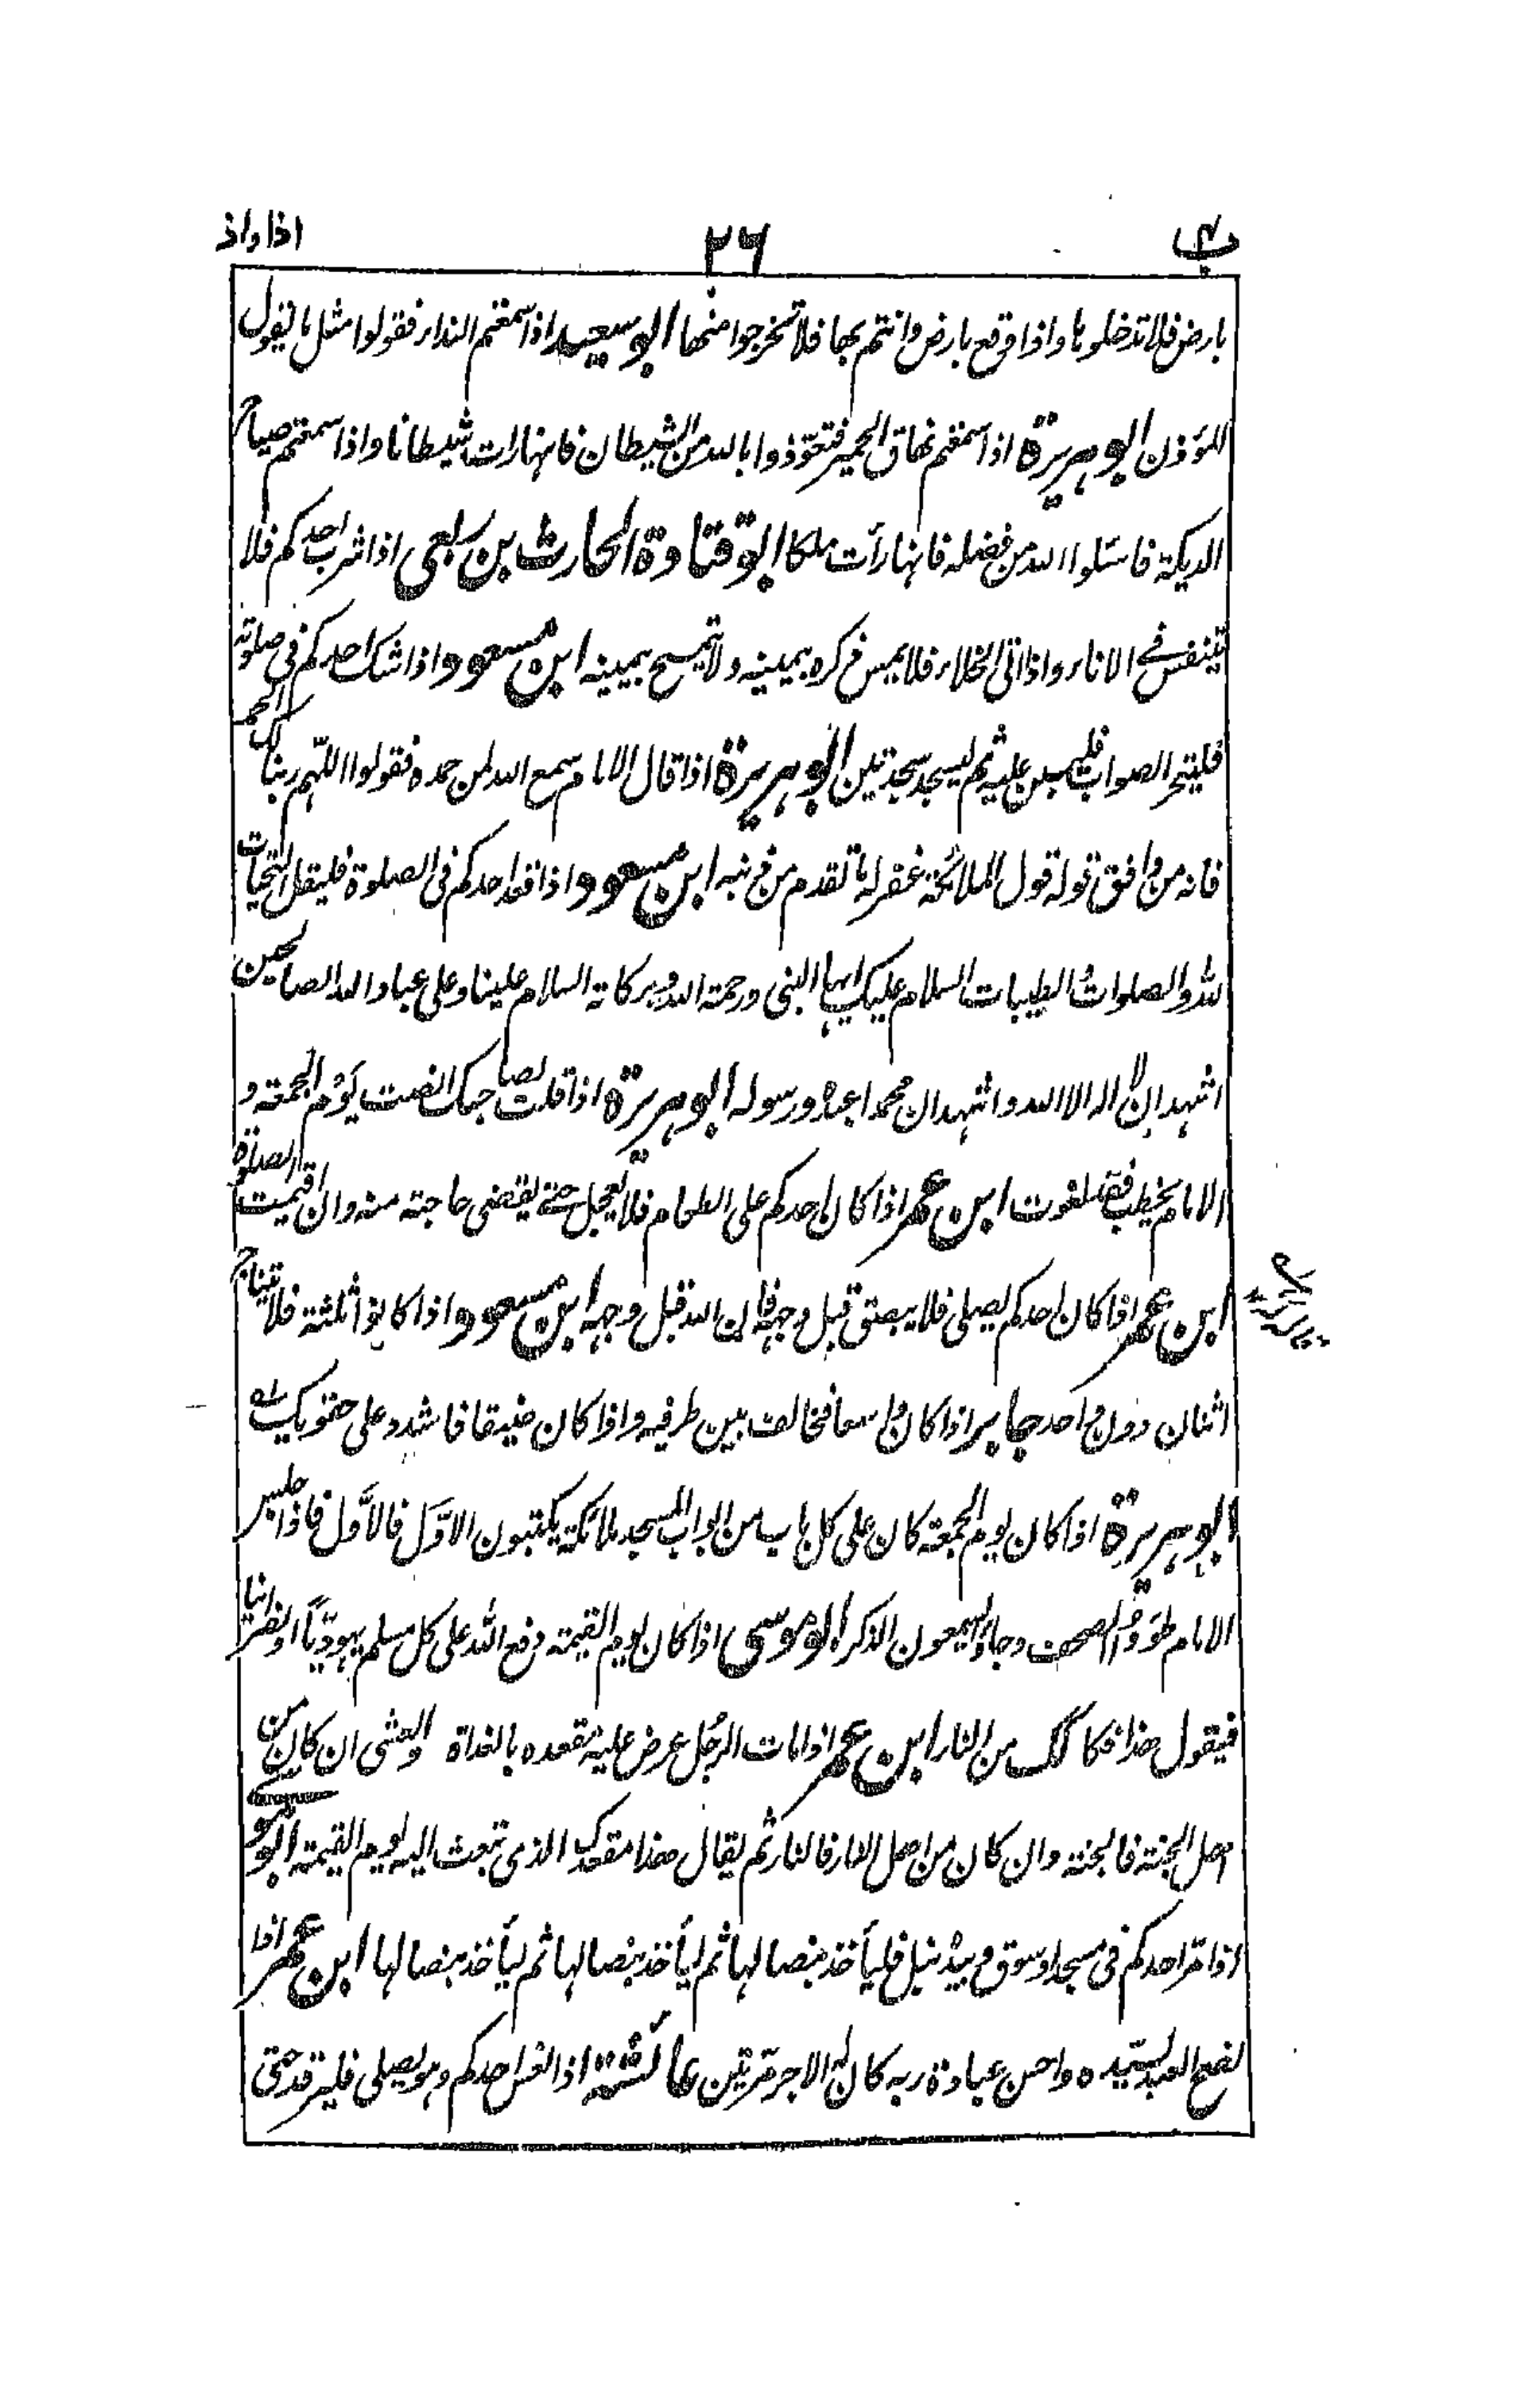 اذا واذ
٢٦
بارض فلا تدخلوها واذا وقع بارض وانتم بها فلا تخرجوا منها ابو سعيد اذا سمعتم النداء فقولوا مثل ما يقول
المؤذن ابو هريرة اذا سمعتم نهاق الحمير فتعوّذوا بالله من الشيطان فانها رات شيطانا واذا سمعتم صياح
الديكة فاسئلوا الله من فضله فانها رأت ملكا ابو قتادة الحارث بن ربعى اذا شرب احدكم فلا
يتنفس فى الاناء واذا اتى الخلاء فلا يمس ذكره بيمينه ولا يتمسح بيمينه ابن مسعود واذا شك احدكم فى صلوته
فليتحر الصواب فليبن عليه ثم ليسجد سجدتين ابو هريرة اذا قال الامام سمع الله لمن حمده فقولوا اللّهم ربنا لك الحمد
فانه من وافق قوله قول الملائكة غفر له ما تقدم من ذنبه ابن مسعود واذا قعد احدكم فى الصلوة فليقل التحيات
لله والصلوات والطيبات السلام عليك ايها النبى ورحمة الله وبركاته السلام علينا وعلى عباد الله الصالحين
اشهد ان لا اله الا الله واشهد ان محمدا عبده ورسوله ابو هريرة اذا قلت لصاحبك انصت يَوْم الجمعة و
الامام يخطب فقد لغوت ابن عمر اذا كان احدكم على الطعام فلا يعجل حتى يقضى حاجته منه وان اقيمت الصلوة
ابن عمر اذا كان احدكم يصلى فلا يبصق قبل وجهه فان الله قبل وجهه ابن مسعود واذا كانوا ثلثة فلا يتناج
اثنان دون واحد جابر اذا كان واسعا فخالف بين طرفيه واذا كان ضيقا فاشدد على حقويك
ابو هريرة اذا كان يوم الجمعة كان على كل باب من ابواب المسجد ملائكة يكتبون الاوّل فالاوّل فاذا جلس
الامام طووا الصحف وجاؤا يسمعون الذكر ابو موسى اذا كان يوم القيمة دفع الله على كل مسلم يهوديّا او نصرانيا
فيقول هذا فكاكك من النار ابن عمر اذا مات الرجُل عرض عليه مقعده بالغداة والعشى ان كان من
اهل الجنة فالجنة وان كان من اهل النار فالنار ثم يقال هذا مقعدك الذى تبعث اليه يوم القيمة ابو موسى
اذا مرّ احدكم فى مسجد او سوق وبيده نبل فليأخذ بنصالها ثم ليأخذ بنصالها ثم ليأخذ بنصالها ابن عمر اذا
نصح العبد لسيّده واحسن عبادة ربه كان له الاجر مرّتين عائشة اذا نعس احدكم وهو يصلى فليرقد حتى